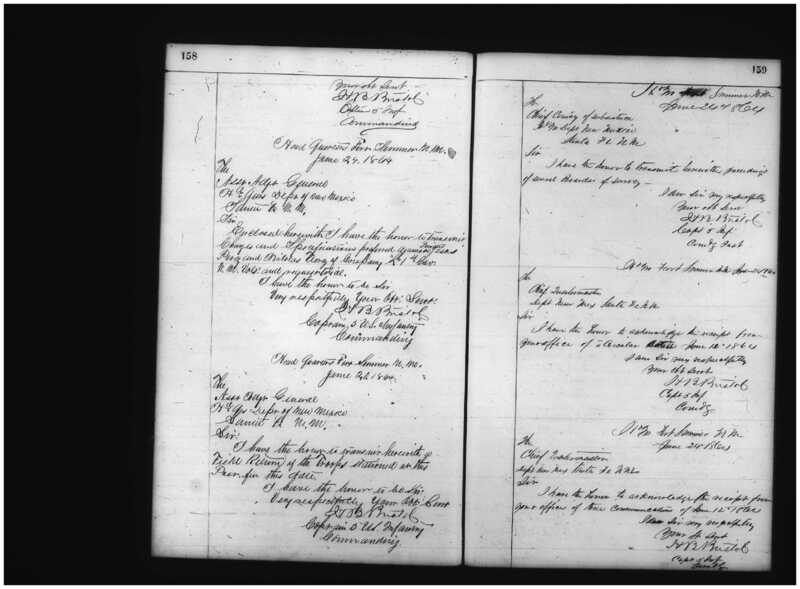 158
Your obt Servt
H B Bristol
Capt 5 Inf
Commanding
Head Quarters Fort Sumner N. M.
June 24. 1864
The
Asst Adjt General
Hd Qurs Dept of New Mexico
Santa Fe N. M.
Sir
Enclosed herewith I have the honor to transmit
Charges and Specifications prefered against
and of Company "L" 1st Cav.
N. M. Vols
I have the honor to be Sir
Very respectfully Your Obt. Servt.
H B Bristol
Captain, 5 U.S. Infantry
Commanding
Head Quarters Fort Sumner N. M.
June 24. 1864.
The,
Asst Adjt General
Hd Qs Dept of New Mexico
Santa Fe N. M.
Sir:
I have the honor to transmit herewith a
Field Return of the Troops stationed at this
Post for this date.
I have the honor to be Sir
Very respectfully Your Obt Servt
H B Bristol
Captain 5 US Infantry
Commanding
159
Sumner N.M.
June 24 1864
To
Chief Comsy of Subsistence
Dept New Mexico
Santa Fe N.M.
Sir
I have the honor to transmit herewith proceedings
of several Boards of survey
I am Sir very respectfully
Your obt Servt
H B Bristol
Capt 5 Inf
Comdg Post
Fort Sumner
To
Chief Quartermaster
Dept New Mex Santa Fe N.M.
Sir
I have the honor to acknowledge the receipt from
your office of Circular June 12th 1864
I am Sir very respectfully
Your obt Servt
H B Bristol
Capt 5 Inf
Comdg
Fort Sumner N.M.
June 24 1864
To
Chief Quartermaster
Dept New Mex Santa Fe N.M.
Sir
I have the honor to acknowledge the receipt from
your office of communication of June 12th 1864
I am Sir very respectfully
Your obt Servt
H B Bristol
Capt 5 Inf
Comdg